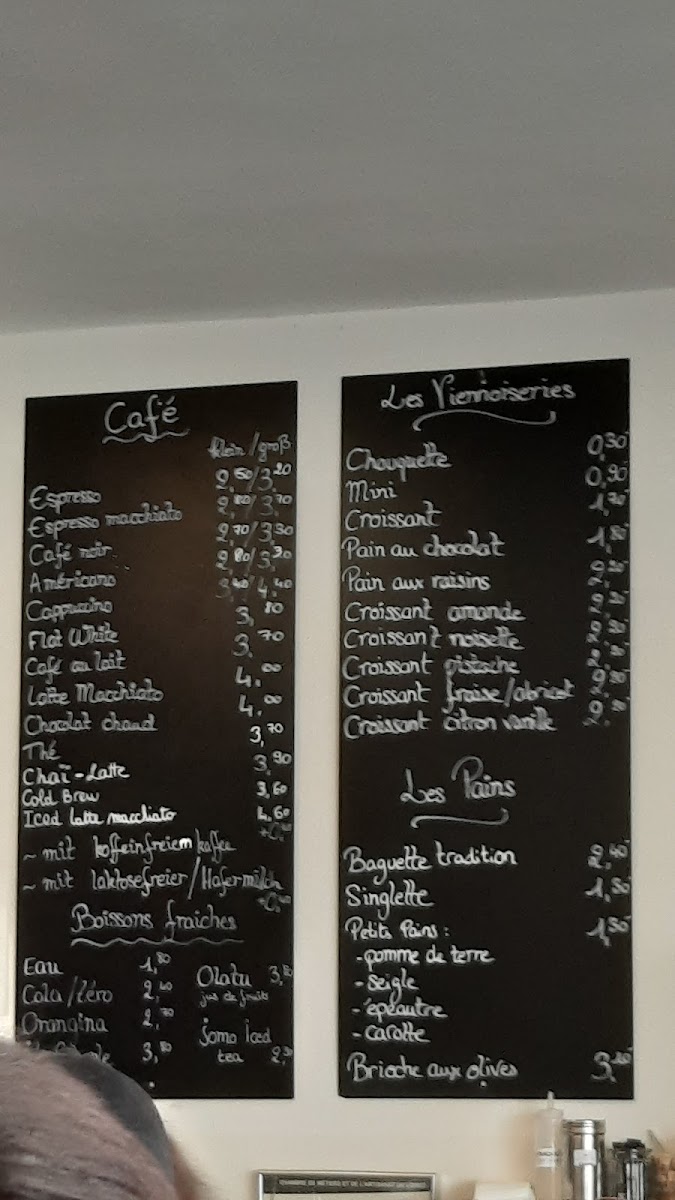 Café
klein/groß
Espresso 2,50/3,20
Espresso macchiato 2,80/3,70
Café noir 2,70/3,30
Américano 2,80/3,30
Cappuccino 3,40/4,40
Flat White 3,80
Café au lait 3,70
Latte Macchiato 4,00
Chocolat chaud 4,00
Thé 3,70
Chaï-Latte 3,90
Cold Brew 3,60
Iced latte macchiato 4,60
~ mit koffeinfreiem kaffee
~ mit laktosefreier/Hafermilch
Boissons fraîches
Eau 1,80
Cola/Zéro 2,60
Orangina 2,70
3,80
Olatu
jus de fruits
jomo Iced
tea
Les Viennoiseries
Chouquette 0,30
Mini 0,90
Croissant
Pain au chocolat
Pain aux raisins
Croissant amande
Croissant noisette
Croissant pistache
Croissant fraise/abricot
Croissant citron vanille
Les Pains
Baguette tradition 2,40
Singlette 1,30
Petits Pains : 1,50
-pomme de terre
-seigle
-épeautre
-carotte
Brioche aux olives